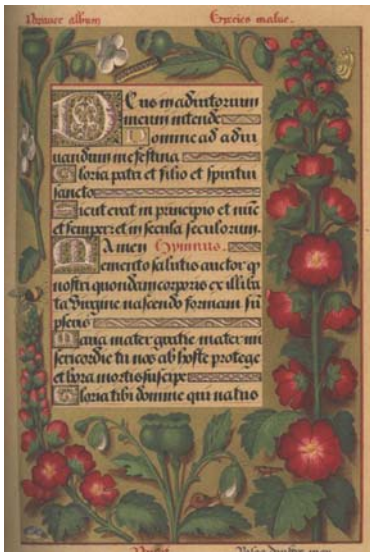 Pavier album
Especes malue.
Deus in adiutorium
meum intende
Domine ad adiu
uandum me festina
Gloria patri et filio et spiritui
sancto
Sicut erat in principio et nūc
et semper: et in secula seculorum.
Amen Hymnus.
Memento salutis auctor qͣ
nostri quondam corporis ex illiba
ta virgine nascendo formam sū
pseris
Maria mater gratie mater mi
sericordie tu nos ab hoste protege
et hora mortis suscipe
Gloria tibi domine qui natus